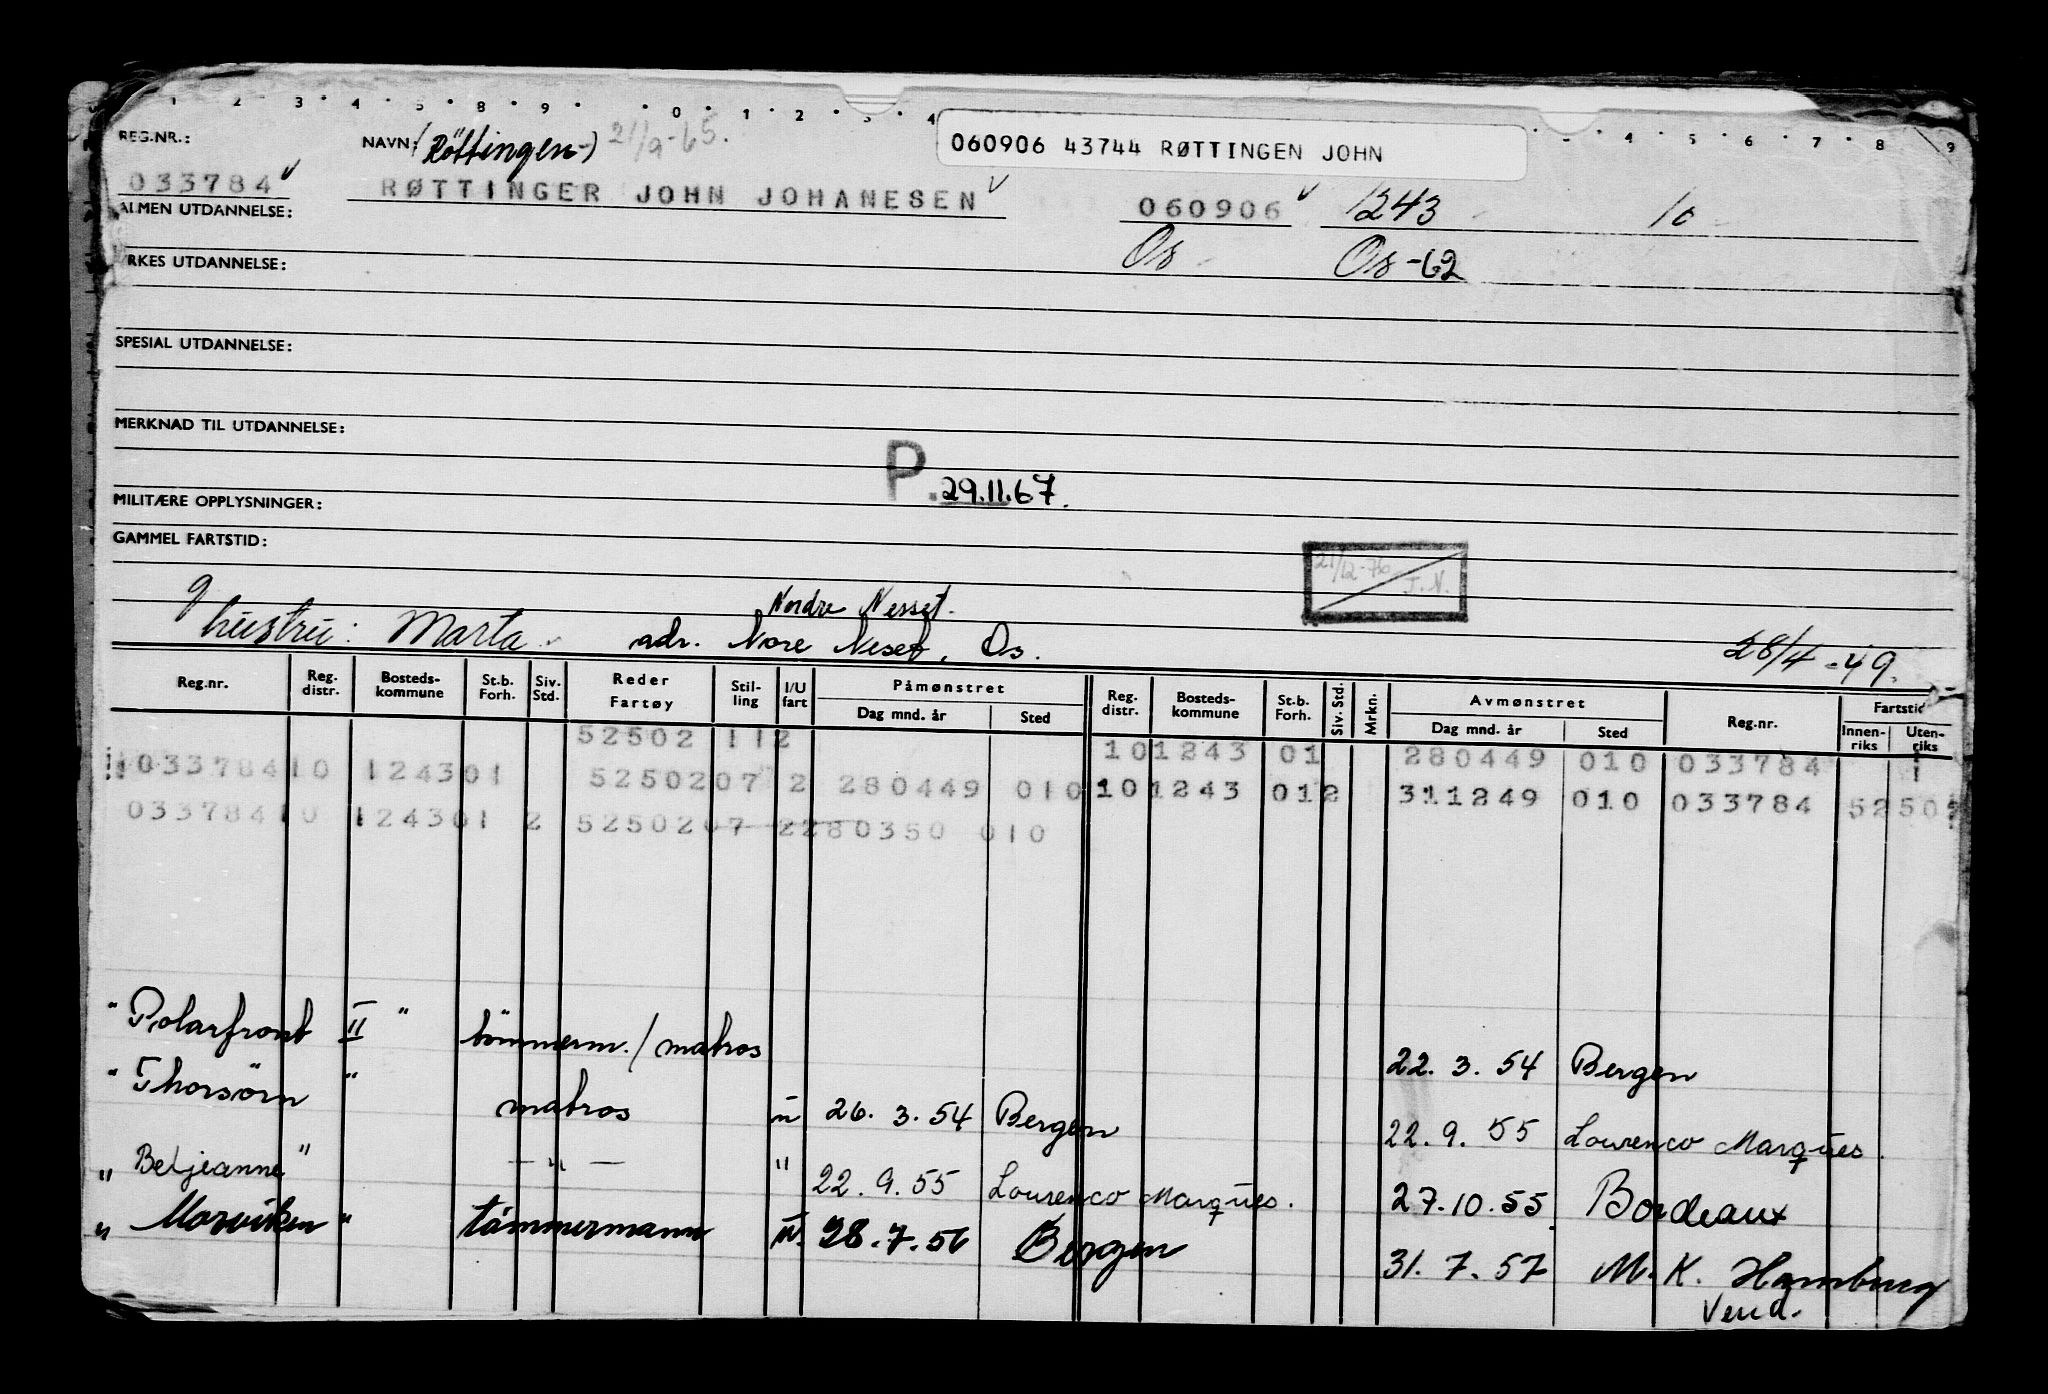 1 2 3 4 5 8 9 0 1 2 3 4 4 5 6 7 8 9
REG.NR.: NAVN: (Röttingen) 21/9-65. 060906 43744 RØTTINGEN JOHN
033784 RØTTINGER JOHN JOHANESEN 060906 1243 10
ALMEN UTDANNELSE: Os Os -62
YRKES UTDANNELSE:
SPESIAL UTDANNELSE:
MERKNAD TIL UTDANNELSE:
P. 29.11.67.
MILITÆRE OPPLYSNINGER:
GAMMEL FARTSTID:
21/12-76 J.N.
Nordre Nesset.
g hustru: Marta adr. Nore Neset, Os. 28/4-49.
Reg.nr. Reg. distr. Bosteds-kommune St.b. Forh. Siv. Std. Reder Fartøy Stil-ling I/U fart Påmønstret Dag mnd. år Sted Reg. distr. Bosteds-kommune St.b. Forh. Siv. Std. Mrkn. Avmønstret Dag mnd. år Sted Reg.nr. Fartstid Innen-riks Uten-riks
52502 112 101243 01 280449 010 033784
033784 10 124301 52502 07 2 280449 010 10 1243 012 311249 010 033784 52502
033784 10 124301 2 52502 07 2 280350 010
" Polarfront II " tömmerm./matros 22.3.54 Bergen
" Thorsörn " matros u 26.3.54 Bergen 22.9.55 Lourenco Marques.
" Betjeanne " — " — " 22.9.55 Lourenco Marques. 27.10.55 Bordeaux
" Morviken " tömmermann u. 28.7.56 Bergen 31.7.57 M.K. Hamburg
Vend.